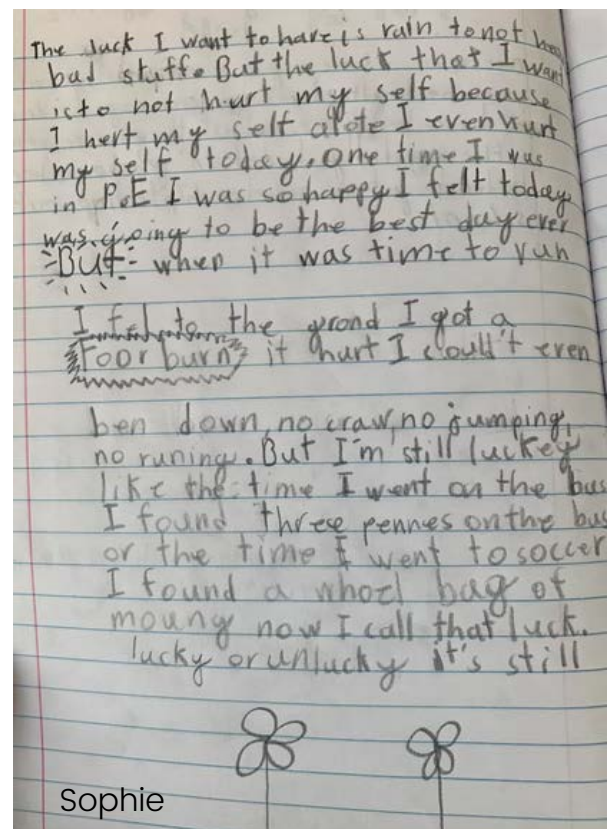 The luck I want to have is rain to not
bad stuff. But the luck that I want
is to not hurt my self because
I hert my self alote I even hurt
my self today. One time I was
in P.E I was so happy I felt today
was going to be the best day ever
But when it was time to run
I fel to the grond I got a
foor burn it hurt I cloult't even
ben down, no craw, no jumping,
no runing. But I'm still luckey
like the time I went on the bus
I found three pennes on the bus
or the time I went to soccer
I found a whoel bag of
moung now I call that luck.
lucky or unlucky it's still
Sophie